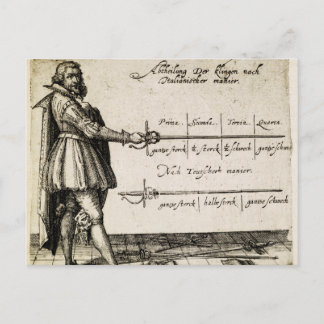 Abtheilung Der klingen nach
Italiänischer manier.
Prima Secunde Tertia Quarta
gantze sterck ½ sterck ½ schwech gantze schwech
Nach Teutscher manier.
gantze sterck halbe sterck gantze schwech